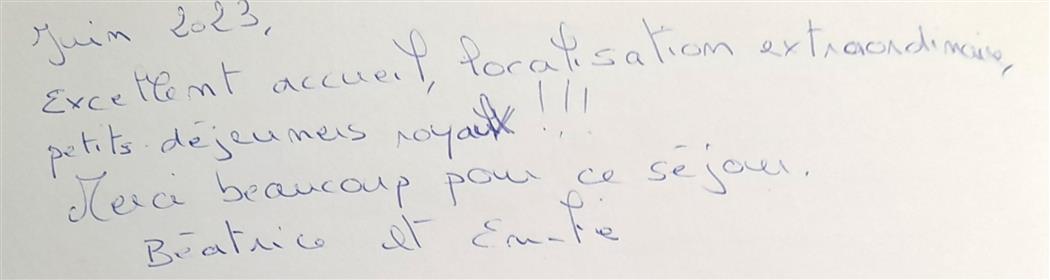 Juin 2023,
Excellent accueil, localisation extraordinaire,
petits déjeuners royaux !!!
Merci beaucoup pour ce séjour.
Béatrice et Emilie